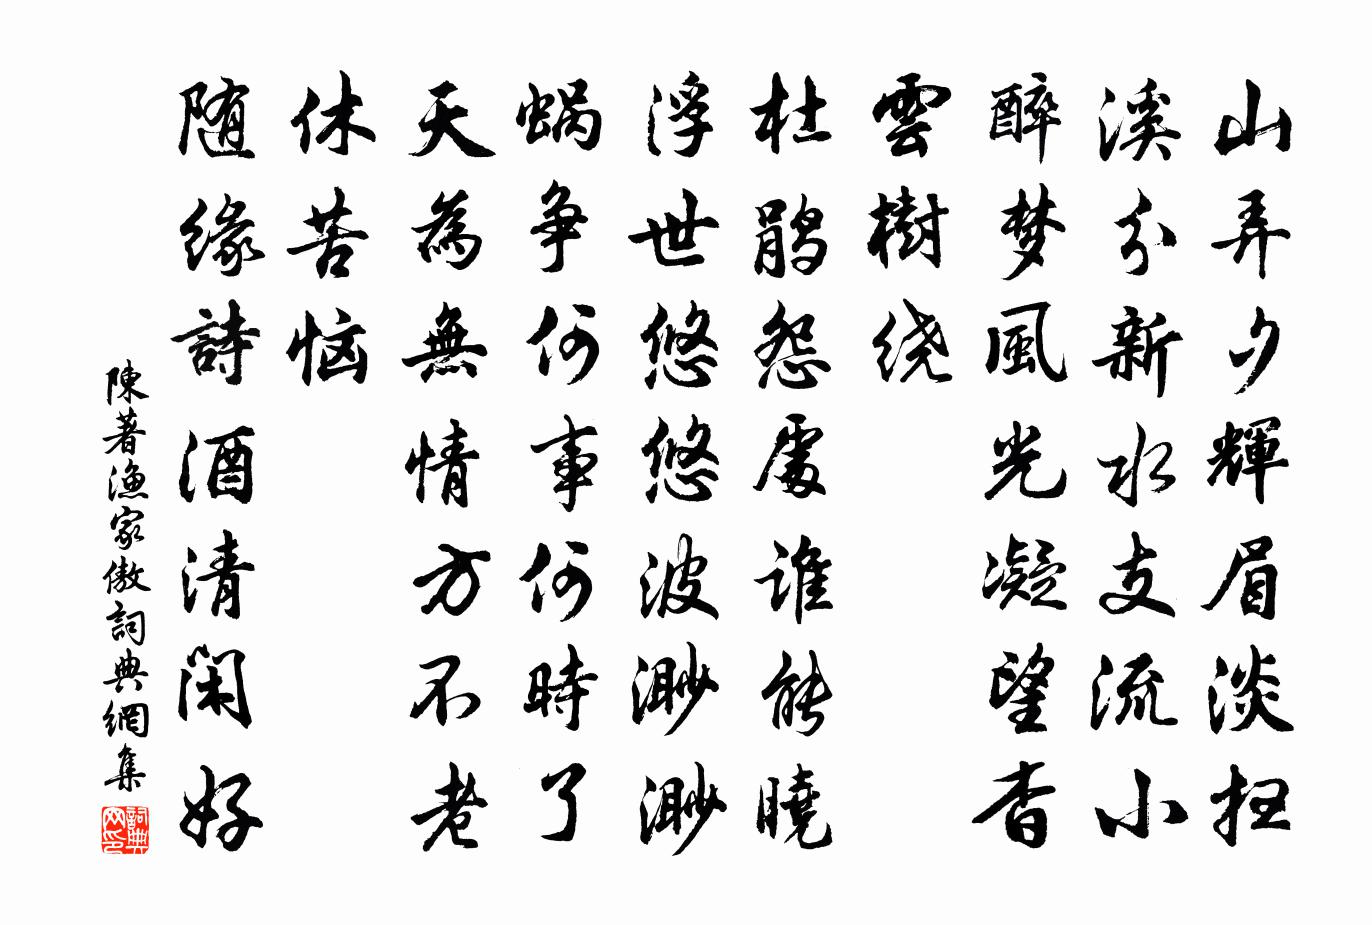 山弄夕輝眉淡扫
溪分新水支流小
醉梦風光凝望杳
雲樹绕
杜鹃怨處谁能曉
浮世悠悠波渺渺
蜗争何事何時了
天為無情方不老
休苦恼
随缘詩酒清閑好
陳著漁家傲詞典網集
詞典网印